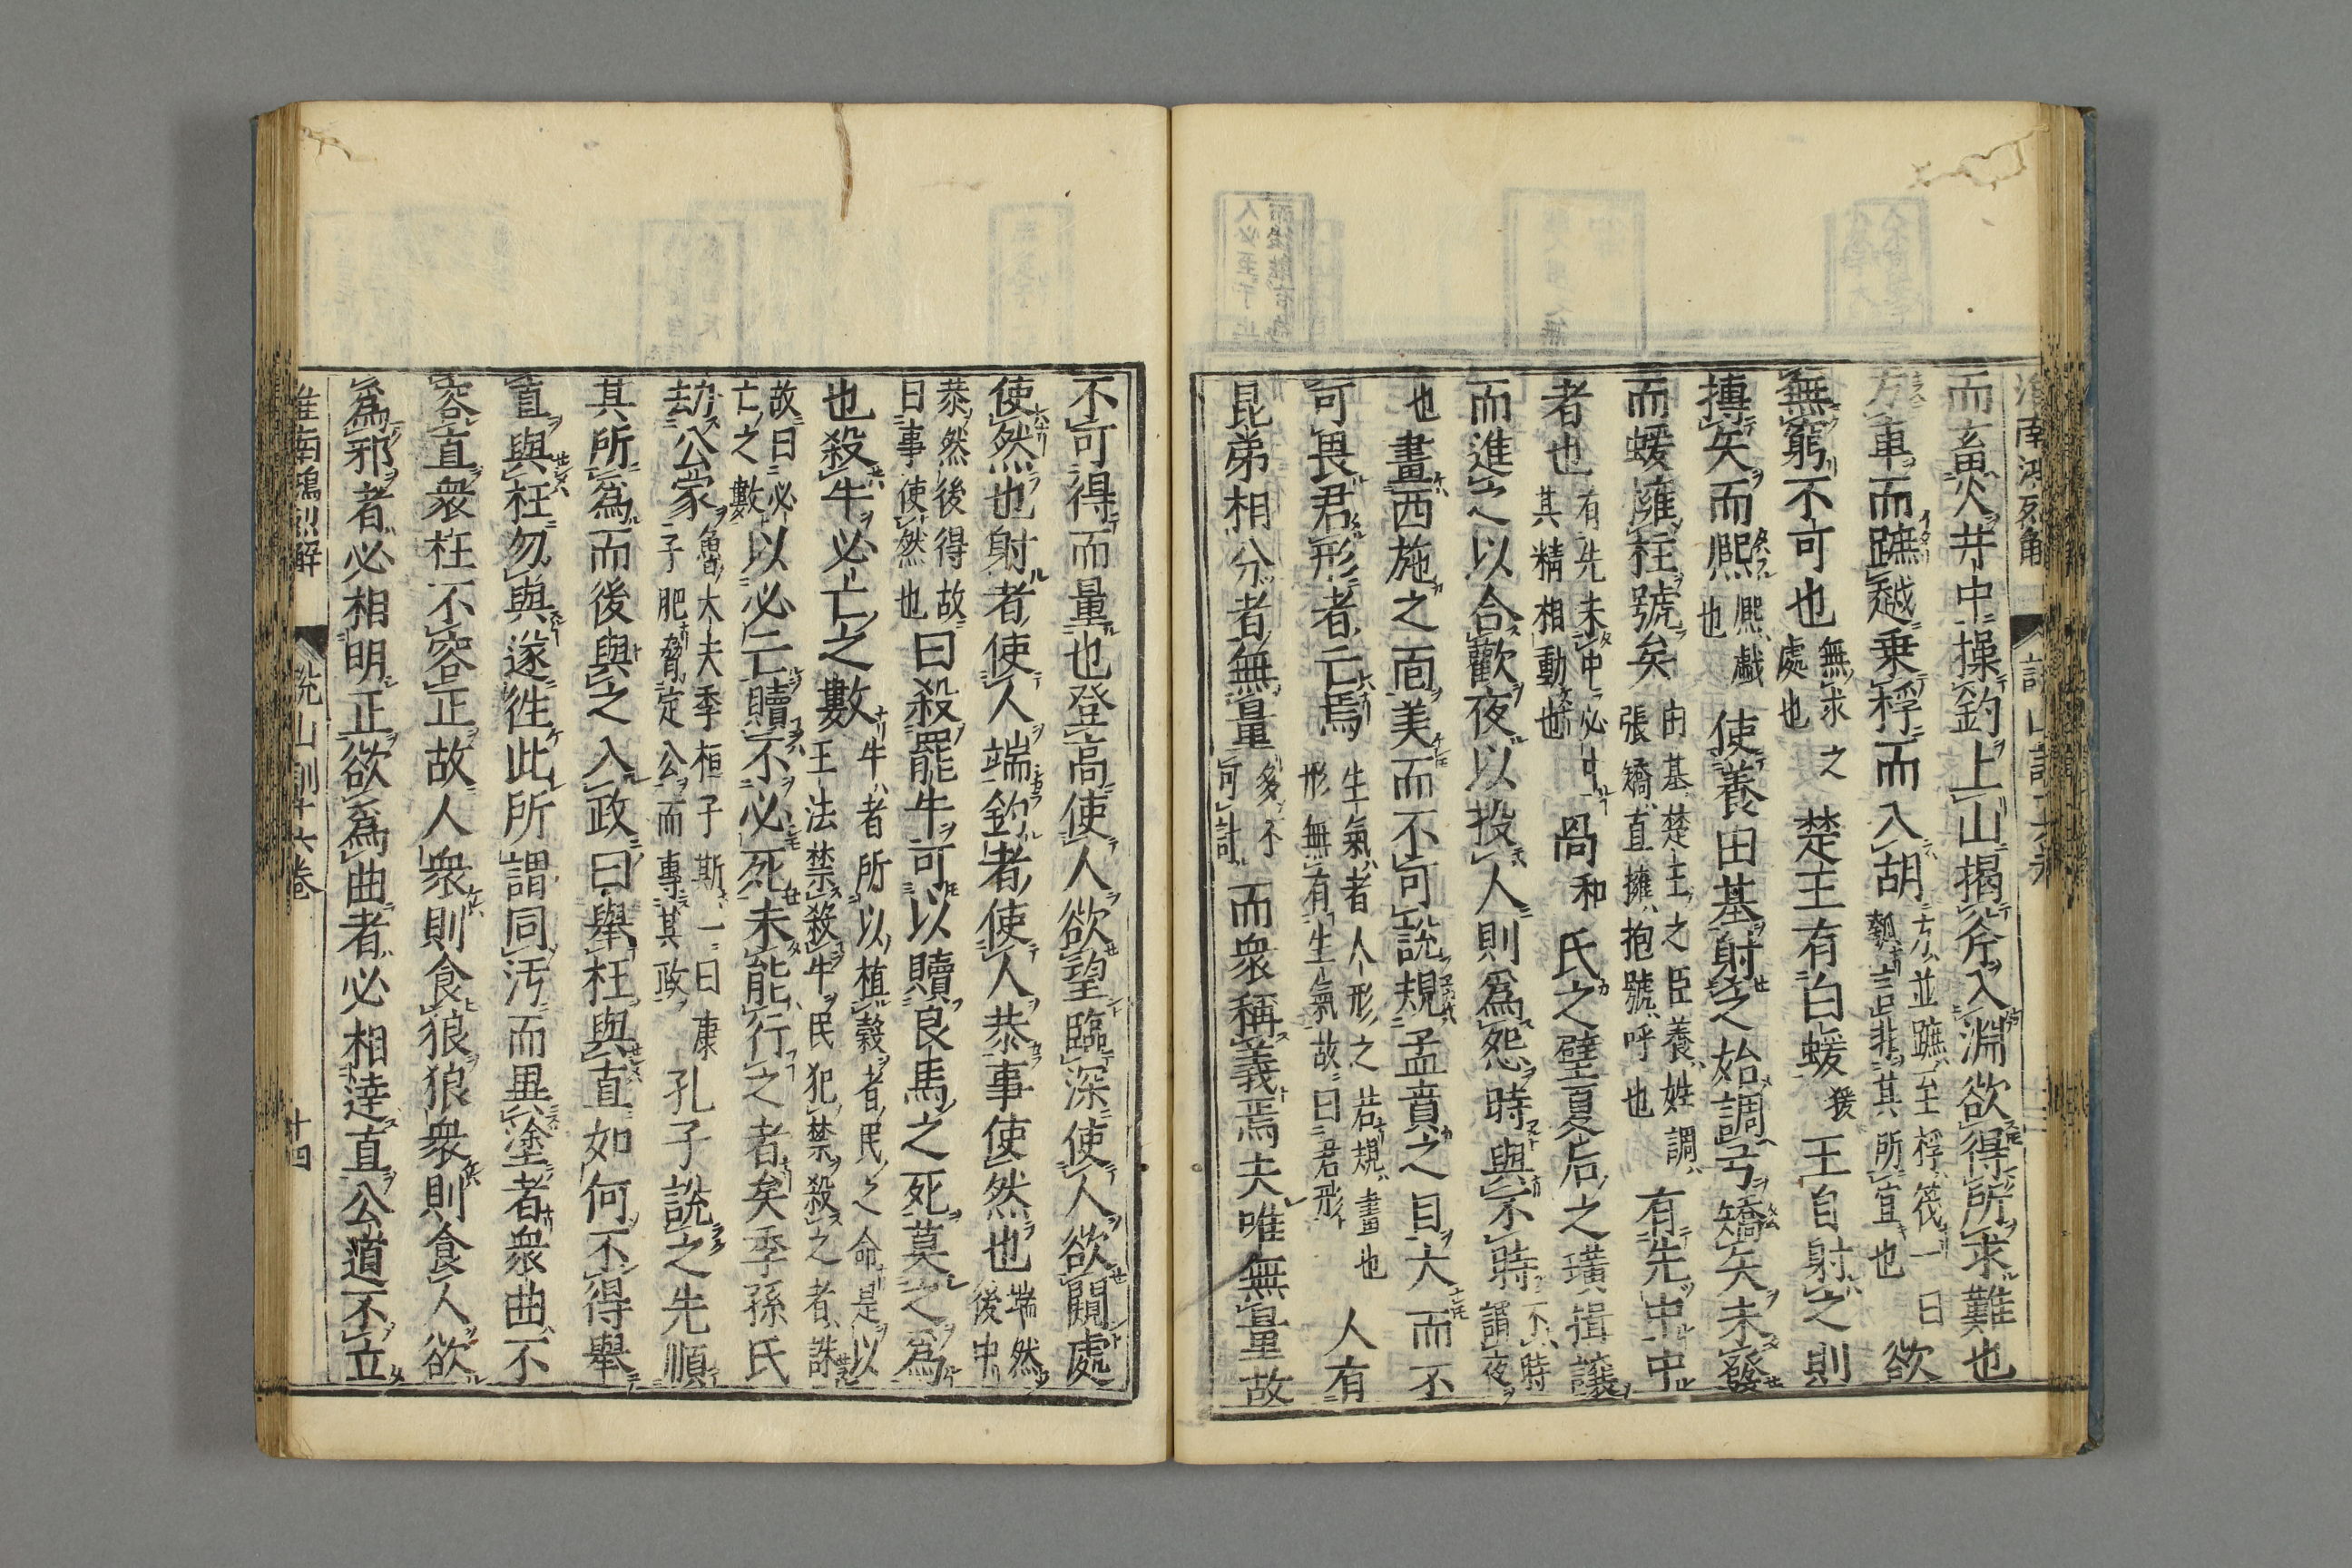 而畜火井中操釣上山揭斧入淵欲得所求難也
方車而蹠越乗桴而入胡方並蹠至桴筏一曰瓠言非其所宜也欲
無窮不可也無求之處也楚王有白蝯猨王自射之則
搏矢而熈熈戲也使養由基射之始調弓矯矢未發
而蝯擁柱號矣由基楚王之臣養姓調張矯直擁抱號呼也有先中中
者也有先未中必中其精相動也咼和氏之璧夏后之璜揖讓
而進之以合歡夜以投人則爲怨時與不時不時謂夜
也畫西施之面美而不可說規孟賁之目大而不
可畏君形者亡焉生氣者人形之形無有生氣故曰君形若規畫也人有
昆弟相分者無量多不可計而衆稱義焉夫唯無量故
不可得而量也登高使人欲望臨深使人欲闚處
使然也射者使人端釣者使人恭事使然也端然後中
恭然後得故曰事使然也曰殺罷牛可以贖良馬之死莫之爲
也殺牛必亡之數牛者所以植穀者民之命是以王法禁殺牛民犯禁殺之者誅
故曰必亡之數以必亡贖不必死未能行之者矣季孫氏
劫公家魯大夫季桓子斯一曰康子肥脅定公而專其政孔子說之先順
其所爲而後與之入政曰舉枉與直如何不得舉
直與枉勿與遂徃此所謂同汚而異塗者衆曲不
容直衆枉不容正故人衆則食狼狼衆則食人欲
爲邪者必相明正欲爲曲者必相逹直公道不立
淮南鴻烈解 說山訓十六卷 十四